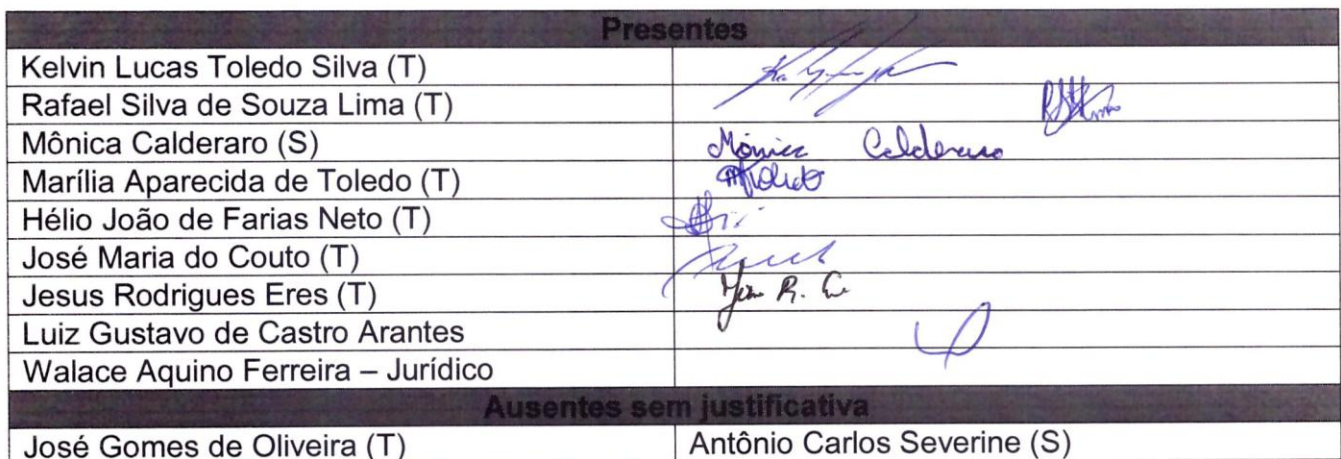 Presentes
Kelvin Lucas Toledo Silva (T)
Rafael Silva de Souza Lima (T)
Mônica Calderaro (S) Mônica Calderaro
Marília Aparecida de Toledo (T) MToledo
Hélio João de Farias Neto (T)
José Maria do Couto (T)
Jesus Rodrigues Eres (T)
Luiz Gustavo de Castro Arantes
Walace Aquino Ferreira – Jurídico
Ausentes sem justificativa
José Gomes de Oliveira (T) Antônio Carlos Severine (S)